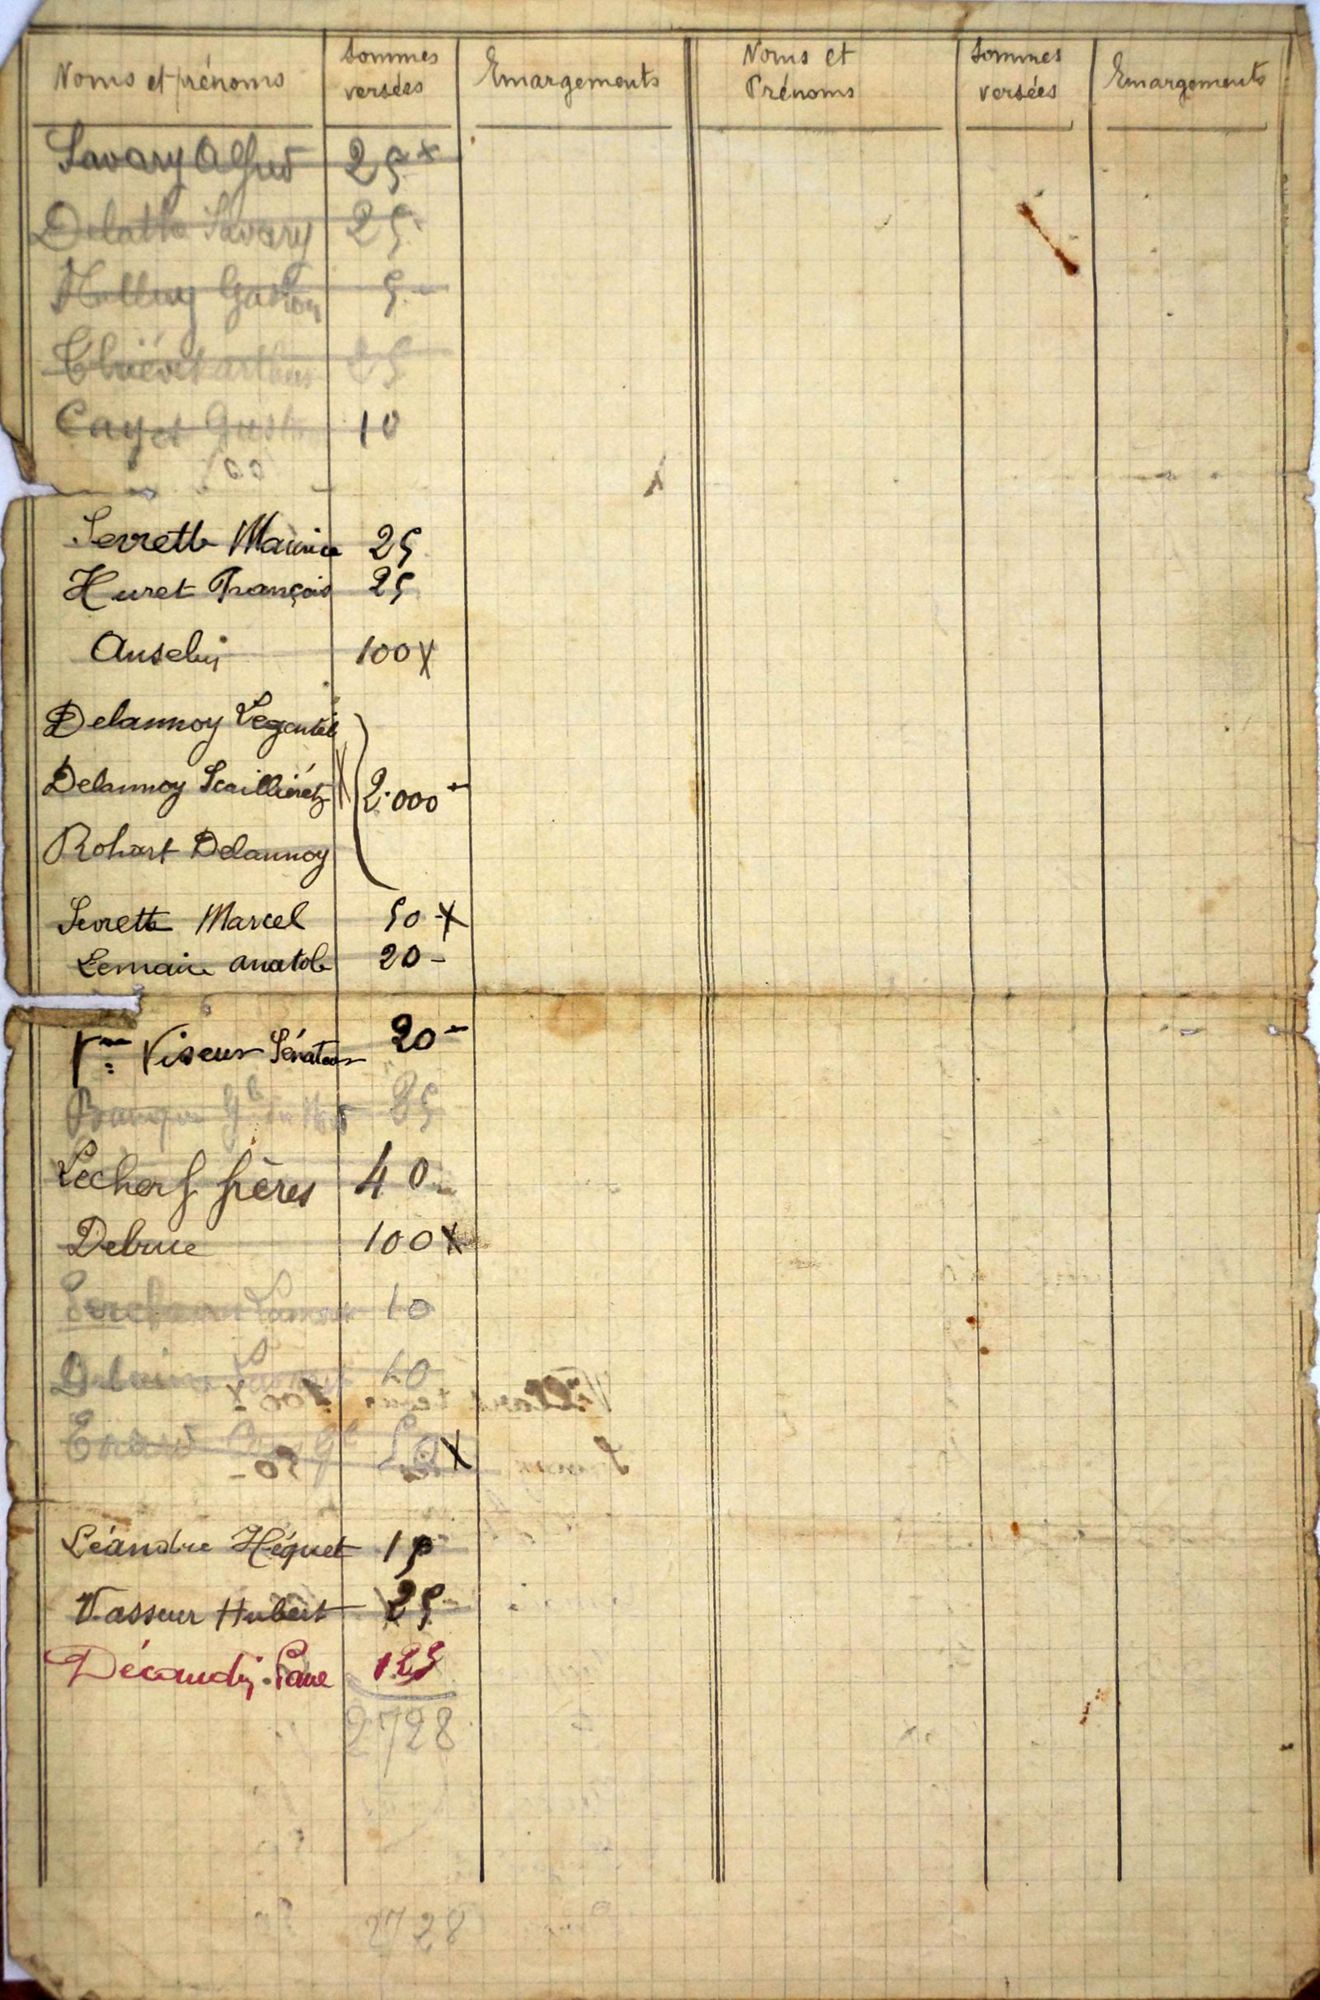 Noms et prénoms Sommes versées Emargements Noms et Prénoms Sommes versées Emargements
Savary Alfred 25 x
Delattre Savary 25
Gaston 5 -
Thiévet arthus 25
Cayet Gustave 10
Sevrette Maurice 25
Huret François 25
Anselin 100 x
Delannoy Legentil
Delannoy Scailliérez x 2.000 -
Rohart Delannoy
Sevrette Marcel 50 - x
Lemaire anatole 20 -
Vve Viseur Sénateur 20 -
Banque Gle du Nord 25
Lecherf frères 40 -
Debrue 100 x
10
10
50 x
Léandre Héquet 15
Vasseur Hubert 25 -
Décaudin Paul 125
2728
2728